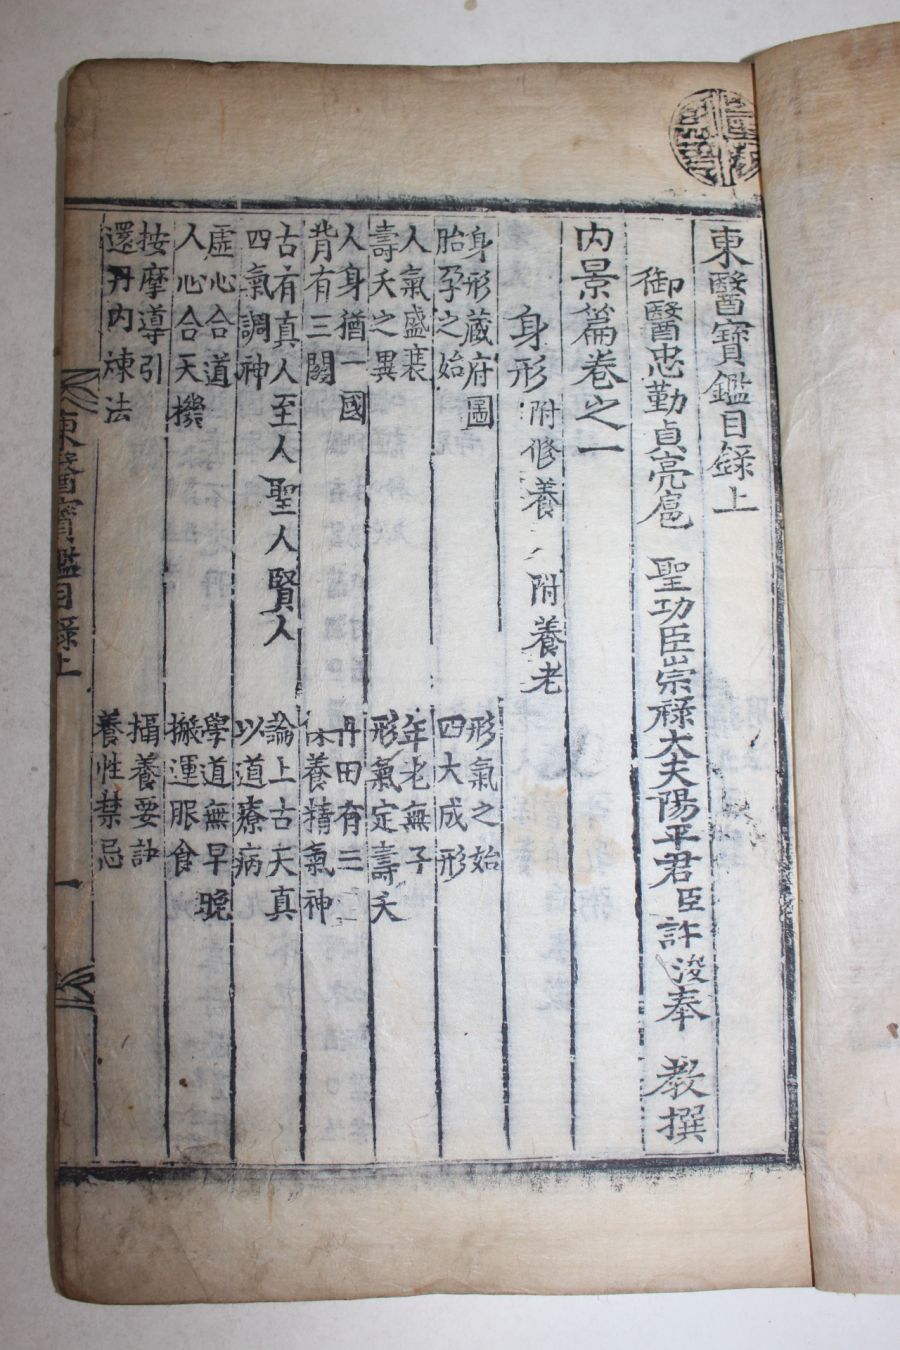 東醫寶鑑目錄上
御醫忠勤貞亮扈 聖功臣崇祿大夫陽平君臣許浚奉 教撰
内景篇卷之一
身形 附修養 附養老
身形藏府圖 形氣之始
胎孕之始 四大成形
人氣盛衰 年老無子
壽夭之異 形氣定壽夭
人身猶一國 丹田有三
背有三關 養精氣神
古有真人至人聖人賢人 論上古天真
四氣調神 以道療病
虛心合道 學道無早晚
人心合天機 搬運服食
按摩導引 攝養要訣
還丹内煉法 養性禁忌
東醫寶鑑目錄上 一